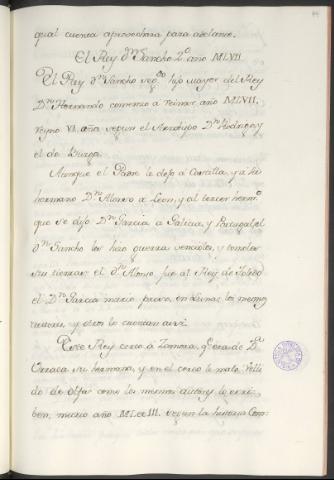 qual cuenta aprovechara para adelante.
El Rey Dⁿ Sancho 2º año MLVII
El Rey Dⁿ Sancho seg.do hijo mayor del Rey
Dⁿ Hernando comenzo a reinar año MLVII.
reyno VI. años segun el Arzobispo Dⁿ Rodrigo y
el de Burgos.
Aunque el Padre le dejo a Castilla, y a su
hermano Dⁿ Alonso a Leon, y al tercer herm.º
que se dijo Dⁿ Garcia a Galicia, y Portugal, el
Dⁿ Sancho les hizo guerra venciolos, y tomoles
sus tierras, el Dⁿ Alonso fue al Rey de Toledo
el Dⁿ Garcia murio preso, en Lunas los mesmos
autores, y otros lo cuentan assi.
Este Rey cerco a Zamora, q.e era de D.ª
Urraca su hermana, y en el cerco le mato Velli
do de olfos como los mesmos autores lo escri-
ben, murio año MLXIII. segun la historia Com-